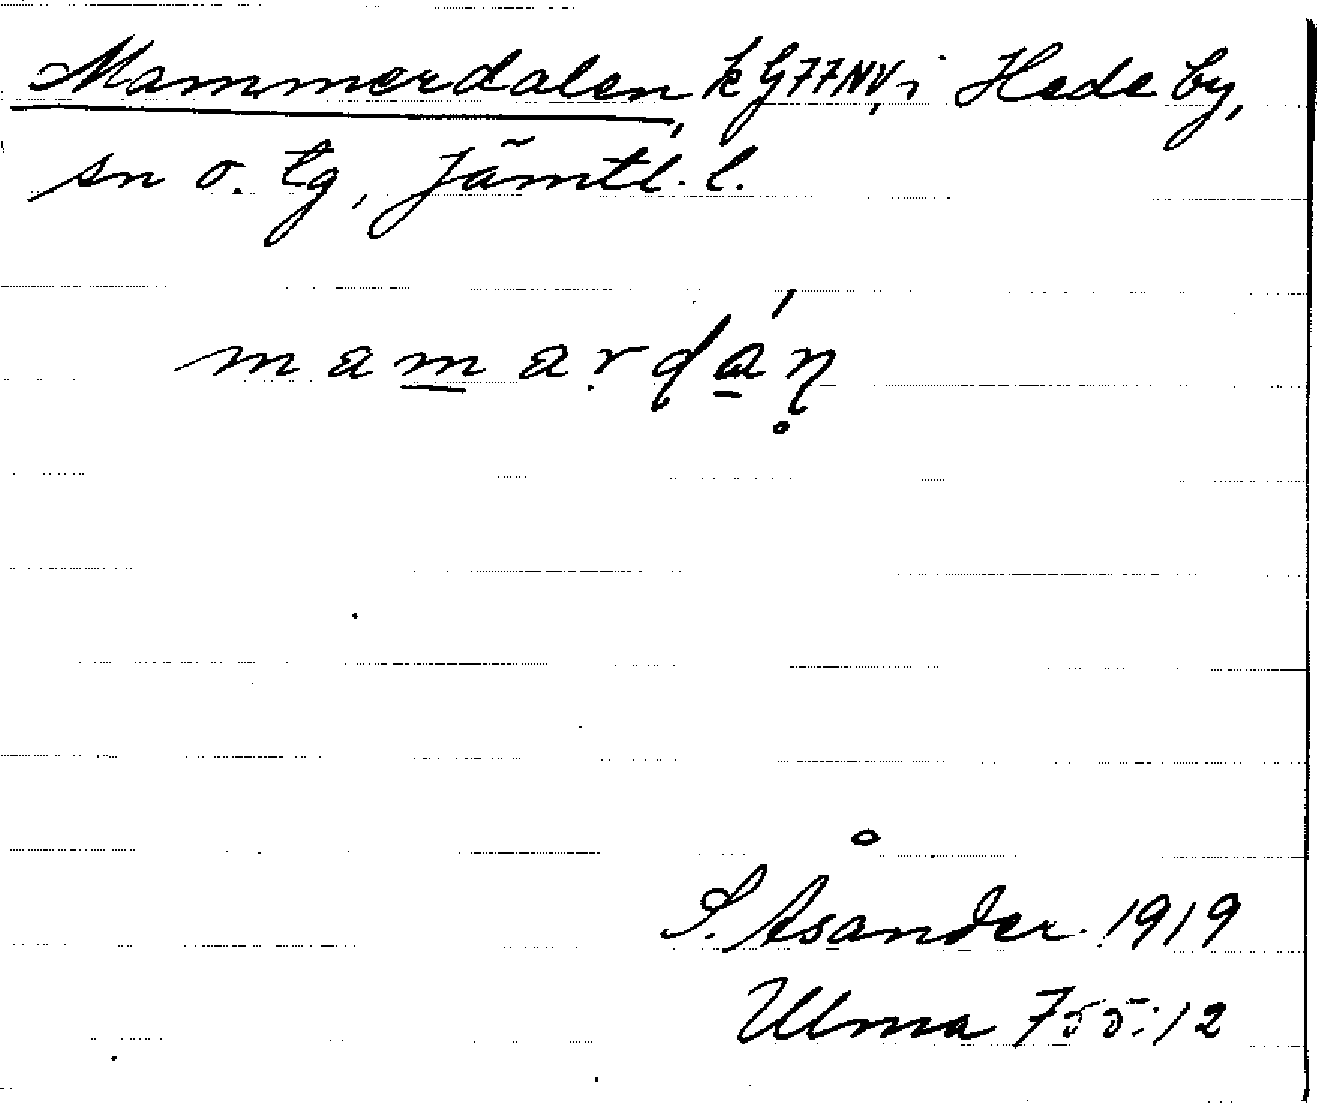 Mammerdalen, k G77NV, i Hede by,
sn o. tg, Jämtl. l.
mamardán̥
S. Åsander 1919
Ulma 755:12